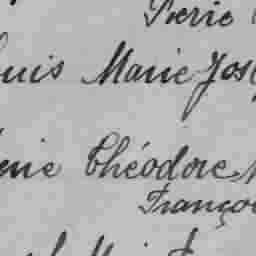 Pierie
ouis Marie Jos
enie Théodore
Franço